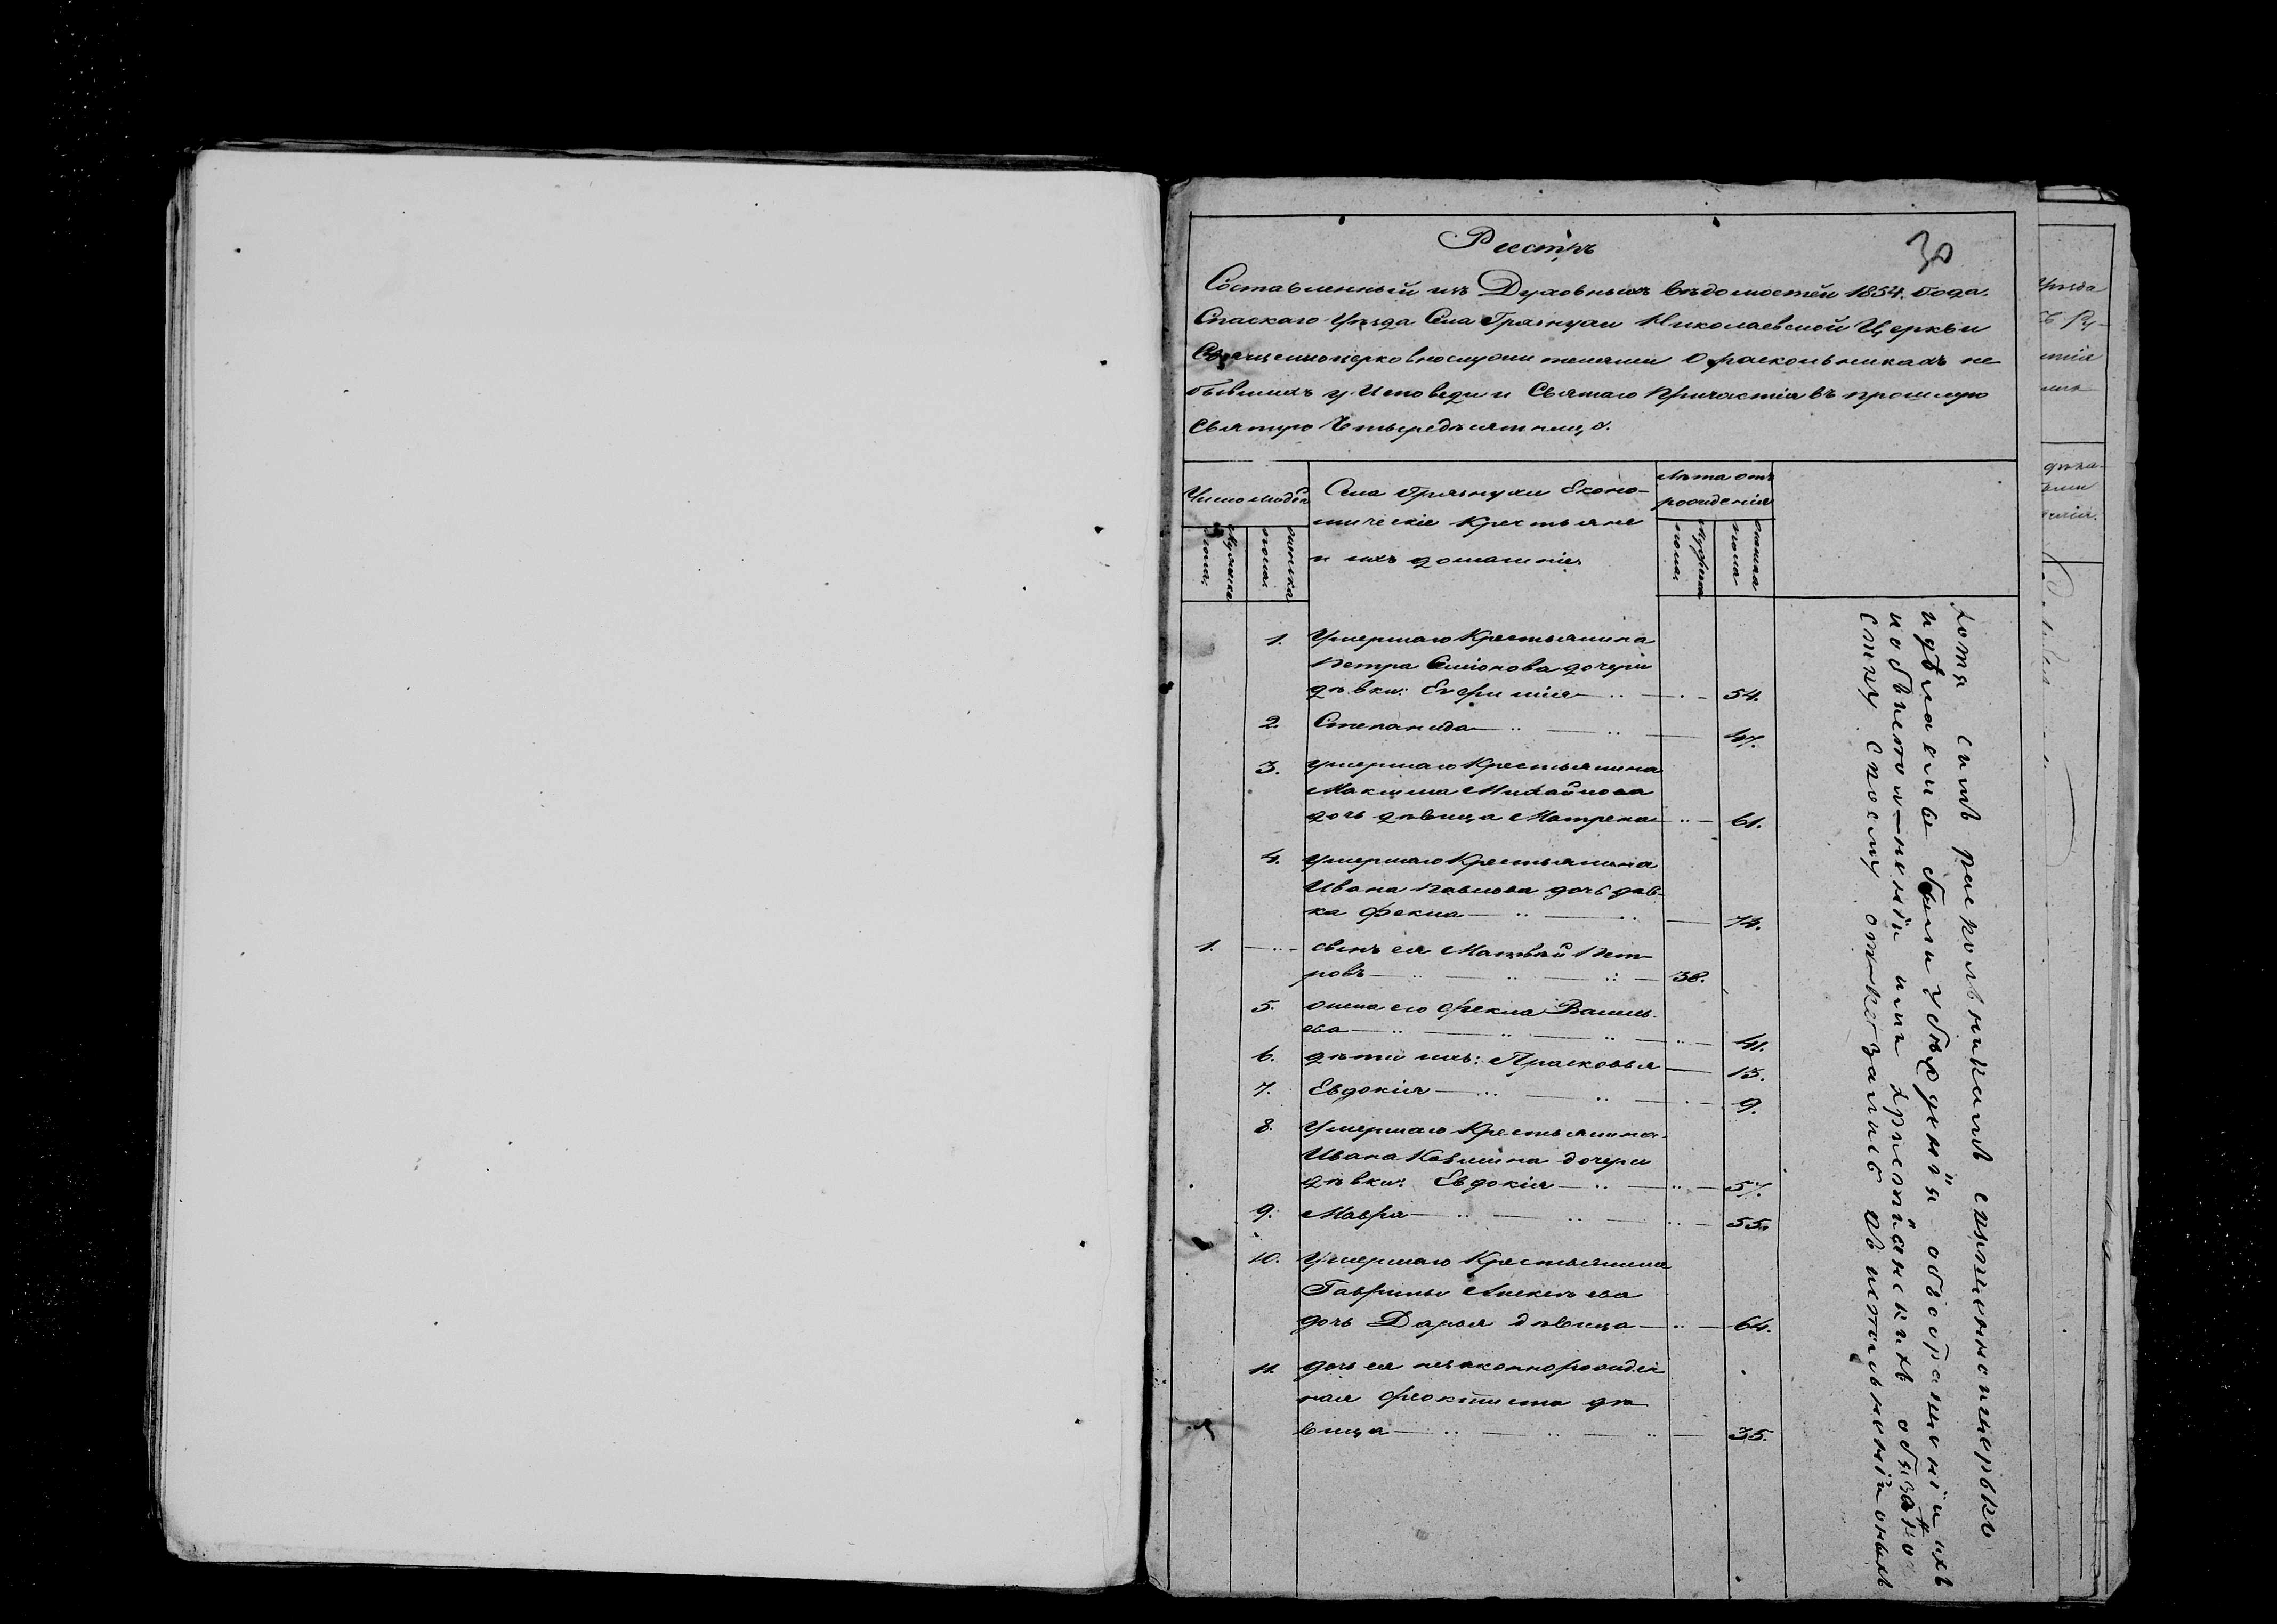 Реестръ
30
Составленный изъ Духовныхъ вѣдомостей 1854. Года.
Спаскаго Уѣзда Села Грязнухи Николаевской Церкви
Священноцерковнослужителями о раскольникахъ не
бывшихъ у Исповеди и Святаго Причастія въ прошлую
Святую Четыредесятницу.
Число людей
Села Грязнухи Еконо-
мическіе Крестьяне
и ихъ домашнія
Лѣта отъ
рожденія
Мужеска
пола
женска
пола
мужеска
пола
женска
пола
1. Умершаго Крестьянина
Петра Симонова дочери
дѣвки: Евфимія 54.
2. Степанида 47.
3. умершаго Крестьянина
Максима Михайлова
дочь дѣвица Матрена 61.
4. умершаго Крестьянина
Ивана Павлова дочь дѣв-
ка Фекла 74.
1. сынъ ея Матвѣй Пет-
ровъ 38.
5. жена его Фекла Василь-
ева 41.
6. дѣти ихъ: Прасковья 13.
7. Евдокія 9.
8. Умершаго Крестьянина
Ивана дочери
дѣвки: Евдокія 57.
9. Мавра 55.
10. Умершаго Крестьянина
Гаврилы Алексѣева
дочь Дарья дѣвица 64.
11. дочь ея незаконнорожден
ная Феоктиста дѣ
вица 35.
хотя симъ раскольникамъ священноцерко
и дѣлаемы были убѣжденія обвобращеніи ихъ
кобыисполненію ими христіанскихъ обязано
сти, но отказались
Уѣзда